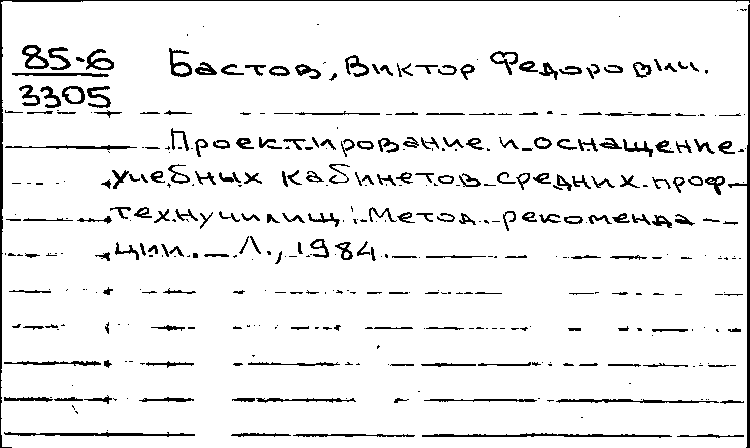 85-6 Бастов, Виктор Федорович.
3305
Проектирование и оснащение
учебных кабинетов средних проф-
техучилищ: Метод. рекоменда-
ции. Л., 1984.